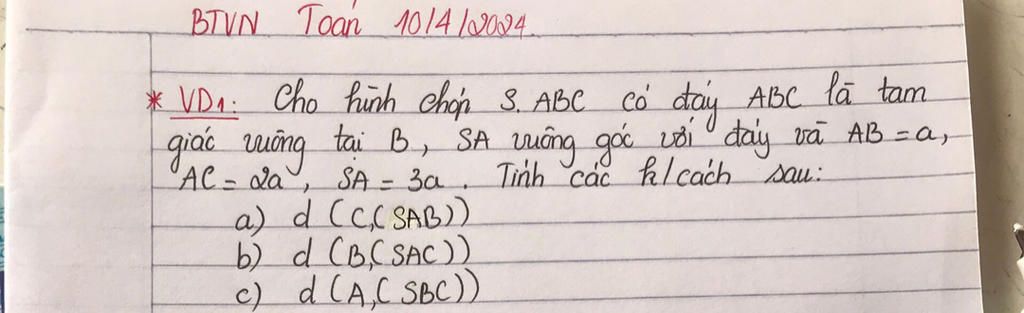 BTVN Toán 10/4/2024.
* VD1: Cho hình chóp S.ABC có đáy ABC là tam
giác vuông tại B, SA vuông góc với đáy và AB = a,
AC = 2a, SA = 3a. Tính các k/cách sau:
a) d (C,(SAB))
b) d (B,(SAC))
c) d (A,(SBC))